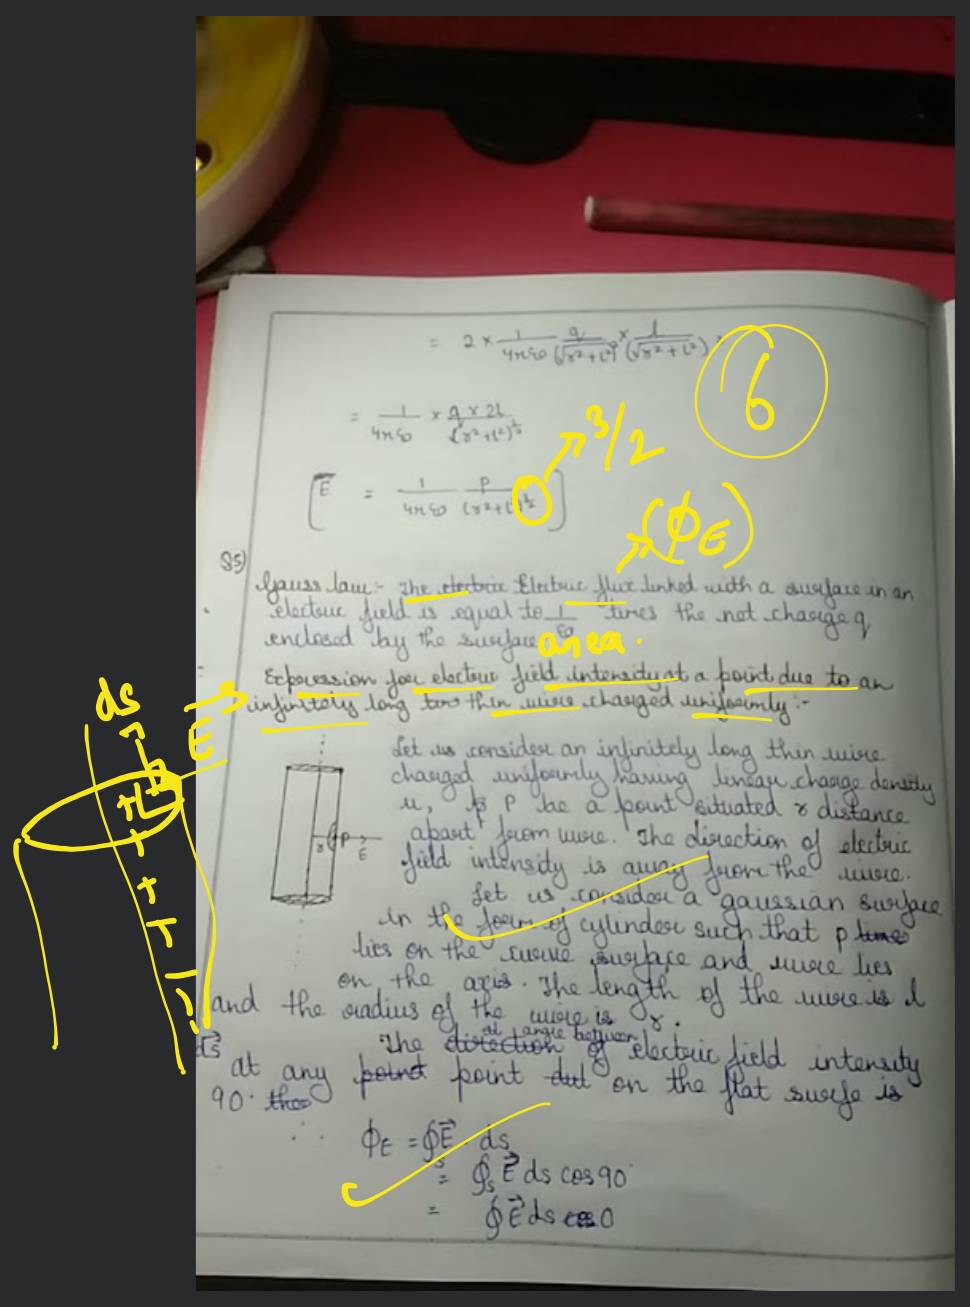 = 2 × 1/4πε0 q/(√r²+l²)² × l/(√r²+l²)
6
= 1/4πε0 × q × 2l/(r²+l²)^½
3/2
[E = 1/4πε0 p/(r²+l²)^½]
(ΦE)
35)
Gauss law:- The electric Electric flux linked with a surface in an
electric field is equal to 1/ε0 times the net charge q
enclosed by the surface area.
Expression for electric field intensity at a point due to an
infinitely long thin wire charged uniformly:-
ds
E
Let us consider an infinitely long thin wire
charged uniformly having linear charge density
u, P be a point situated r distance
apart from wire. The direction of electric
field intensity is away from the wire.
r P E
Let us consider a gaussian surface
in the form of cylinder such that p
lies on the curve surface and wire lies
on the axis. The length of the wire is l
and the radius of the wire is r.
ds
The direction at angle between of electric field intensity
at any point point on the flat surfe is
90°
∴ ΦE = ∮E⃗. ds
= ∮s E⃗ ds cos90°
= ∮E⃗ ds cos 0